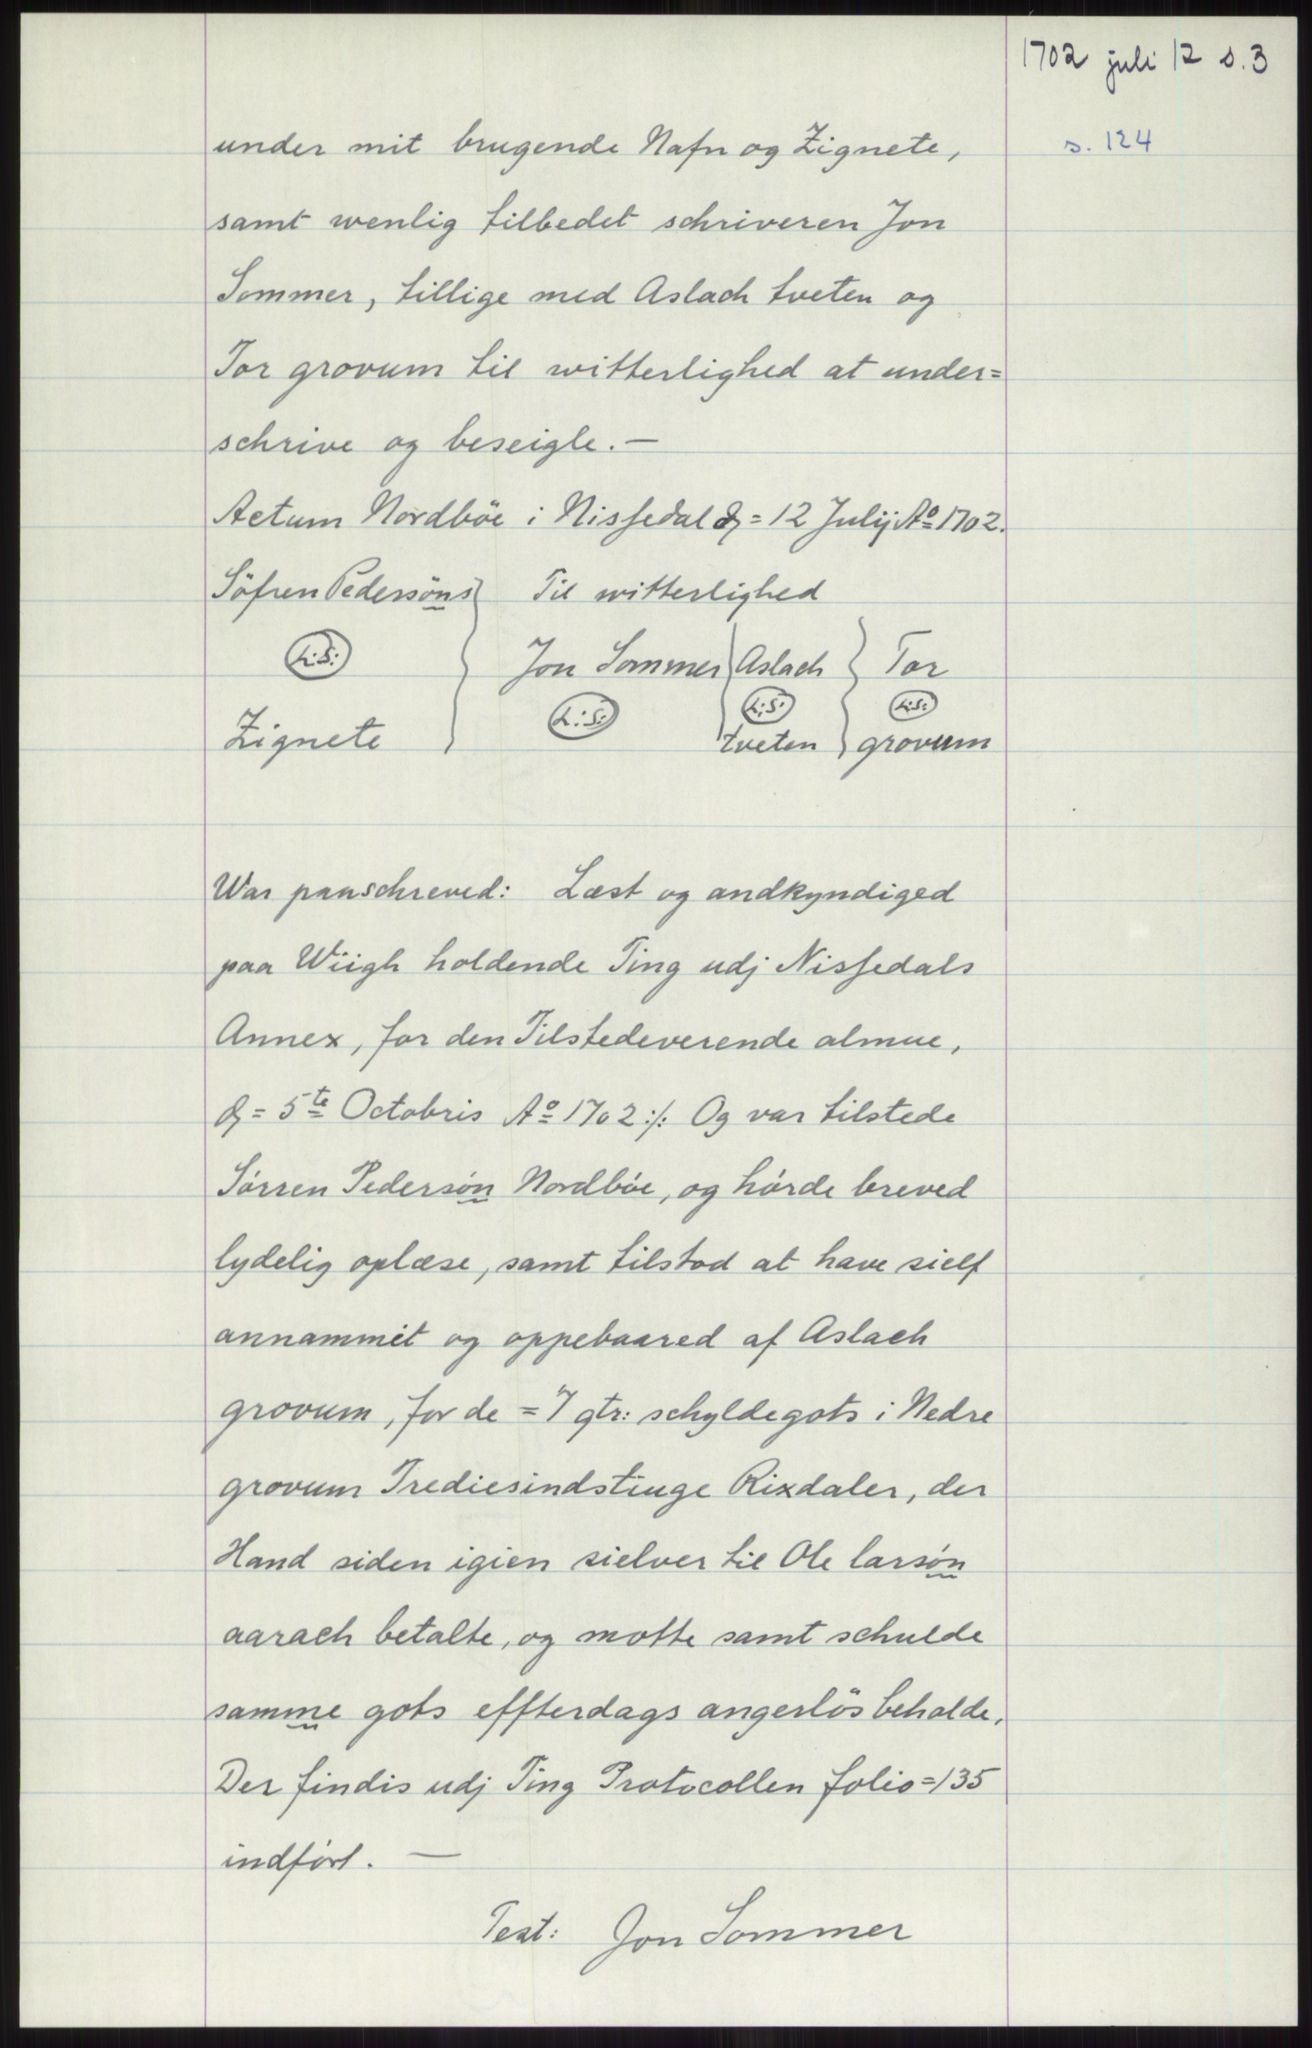 1702 juli 12 s. 3
s. 124
under mit brugende Nafn og Zignete,
samt wenlig tilbedet schriveren Jon
Sommer, tillige med Aslach tveten og
Tor grovum til witterlighed at under=
schrive og beseigle. —
Actum Nordböe i Nissedal d = 12 Julij Aº 1702.
Söfren Pedersöns Til witterlighed
L:S: Jon Sommer Aslach Tor
L:S: L:S: L:S:
Zignete tveten grovum
War paaschreved: Læst og andkyndiged
paa Wiigh holdende Ting udj Nissedals
Annex, for den Tilstedeverende almue,
d = 5te Octobris Aº 1702 :/: Og var tilstede
Sórren Pedersón Nordbóe, og hórde breved
lydelig oplæse, samt tilstod at have sielf
annammit og oppebaared af Aslach
grovum, for de = 7 qtr: schyldegots i Nedre
grovum Trediesindstiuge Rixdaler, der
Hand siden igien sielver til Ole larsón
aarach betalte, og motte samt schulde
samme gots effterdags angerlös beholde,
Der findis udj Ting Protocollen folio = 135
indfórt. —
Test: Jon Sommer